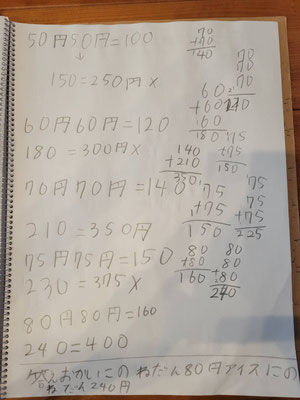 50円50円=100
↓
150=250円×
60円60円=120
180=300円×
70円70円=140
210=350円
75円75円=150
230=375×
80円80円=160
240=400
70
+70
140
70
70
70
210
60
+60
160
180
140
+210
350
75
+75
150
75
+75
150
75
75
+75
225
80
+80
160
80
80
+80
240
答えおかいこのねだん80円アイスにの
ねだん240円